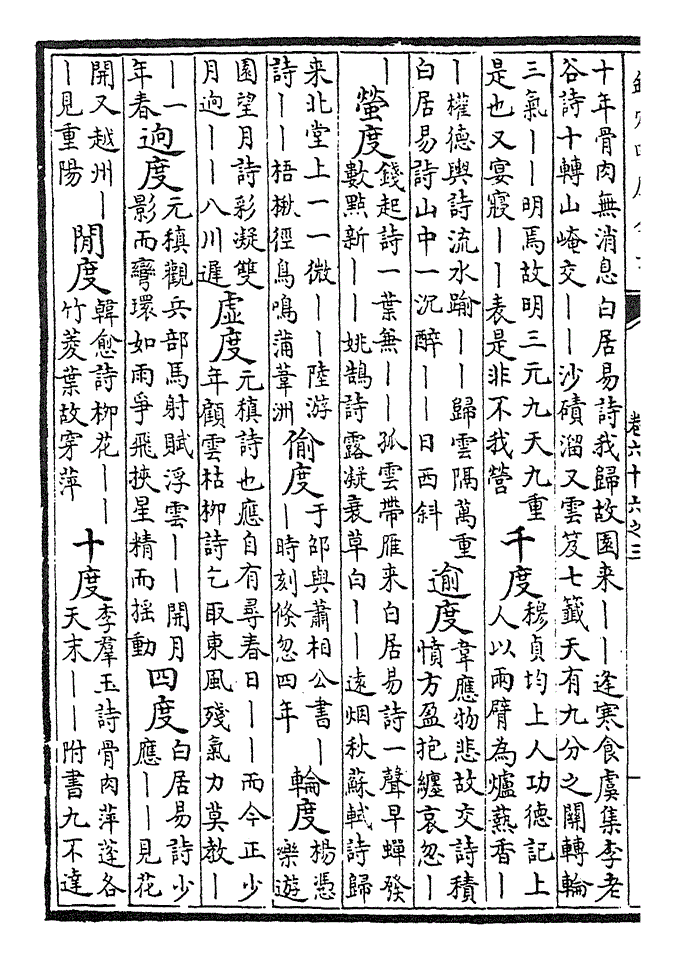 卷六十六之三
十年骨肉無消息白居易詩我歸故園来丨丨逢寒食虞集李老
谷詩十轉山崦交丨丨沙磧溜又雲笈七籤天有九分之關轉輪
三氣丨丨明焉故明三元九天九重
是也又宴寢丨丨表是非不我營
千度
穆貞均上人功德記上
人以兩臂為爐爇香丨
丨權德輿詩流水踰丨丨歸雲隔萬重
白居易詩山中一沉醉丨丨日西斜
逾度
韋應物悲故交詩積
憤方盈抱纏哀忽丨
丨
螢度
錢起詩一葉兼丨丨孤雲帶雁来白居易詩一聲早蟬發
數點新丨丨姚鵠詩露凝衰草白丨丨遠烟秋蘇軾詩歸
来北堂上一一微丨丨陸游
詩丨丨梧楸徑鳥鳴蒲葦洲
偷度
于邵與蕭相公書丨
丨時刻倐忽四年
輪度
楊憑
樂遊
園望月詩彩凝雙
月逈丨丨八川遲
虚度
元稹詩也應自有尋春日丨丨而今正少
年顧雲枯柳詩乞取東風殘氣力莫教丨
丨一
年春
逈度
元稹觀兵部馬射賦浮雲丨丨開月
影而彎環如雨爭飛挾星精而揺動
四度
白居易詩少
應丨丨見花
開又越州丨
丨見重陽
閒度
韓愈詩柳花丨丨
竹菱葉故穿萍
十度
李羣玉詩骨肉萍蓬各
天末丨丨附書九不達